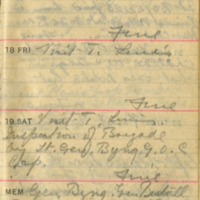 Fine
18 FRI Visit T. Lines
Fine
19 SAT Visit T. Lines
Inspection of Brigade
by Lt. Genl. Byng G.O.C
Corp.
Fine
MEM Gen. Byng. Gen.